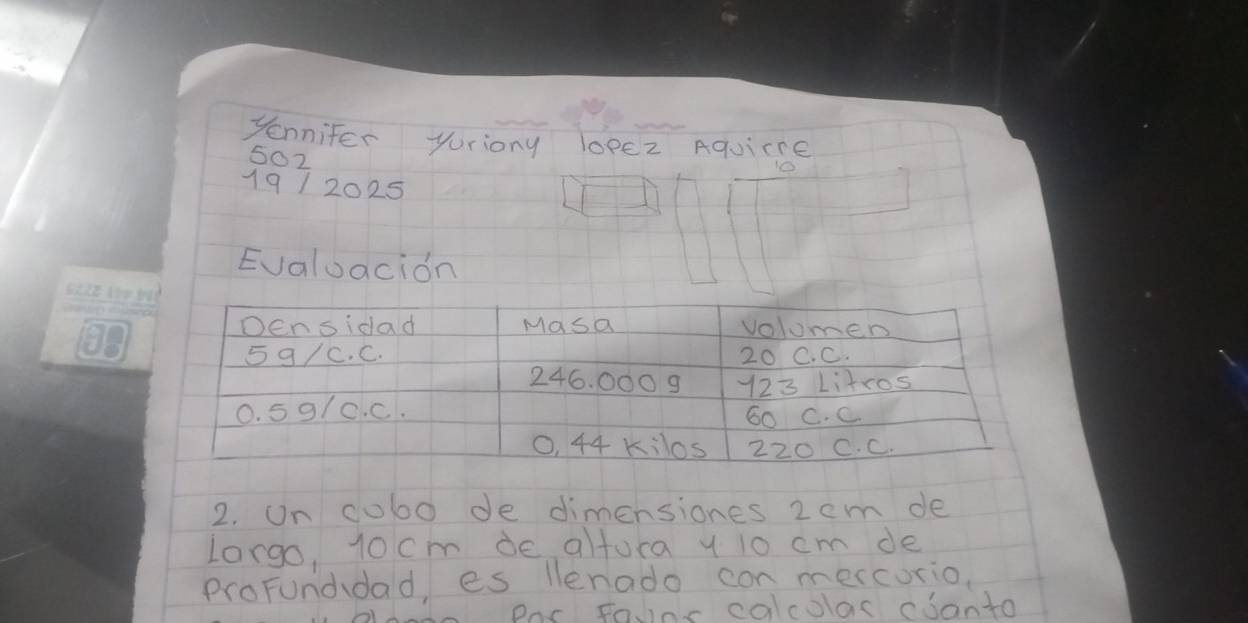 Yennifer Yuriany lopez Aguirre
502
19/2025
10
Evaluación
Densidad Masa volumen
5g/c.c. 20 c.c.
246.000g 123 Litros
0.5g/c.c. 60 c.c
0,44 kilos 220 c.c.
2. un cubo de dimensiones 2cm de
Largo, 10cm de altura y 10 cm de
profundidad, es llenado con mercurio,
por favor calcular cuanto